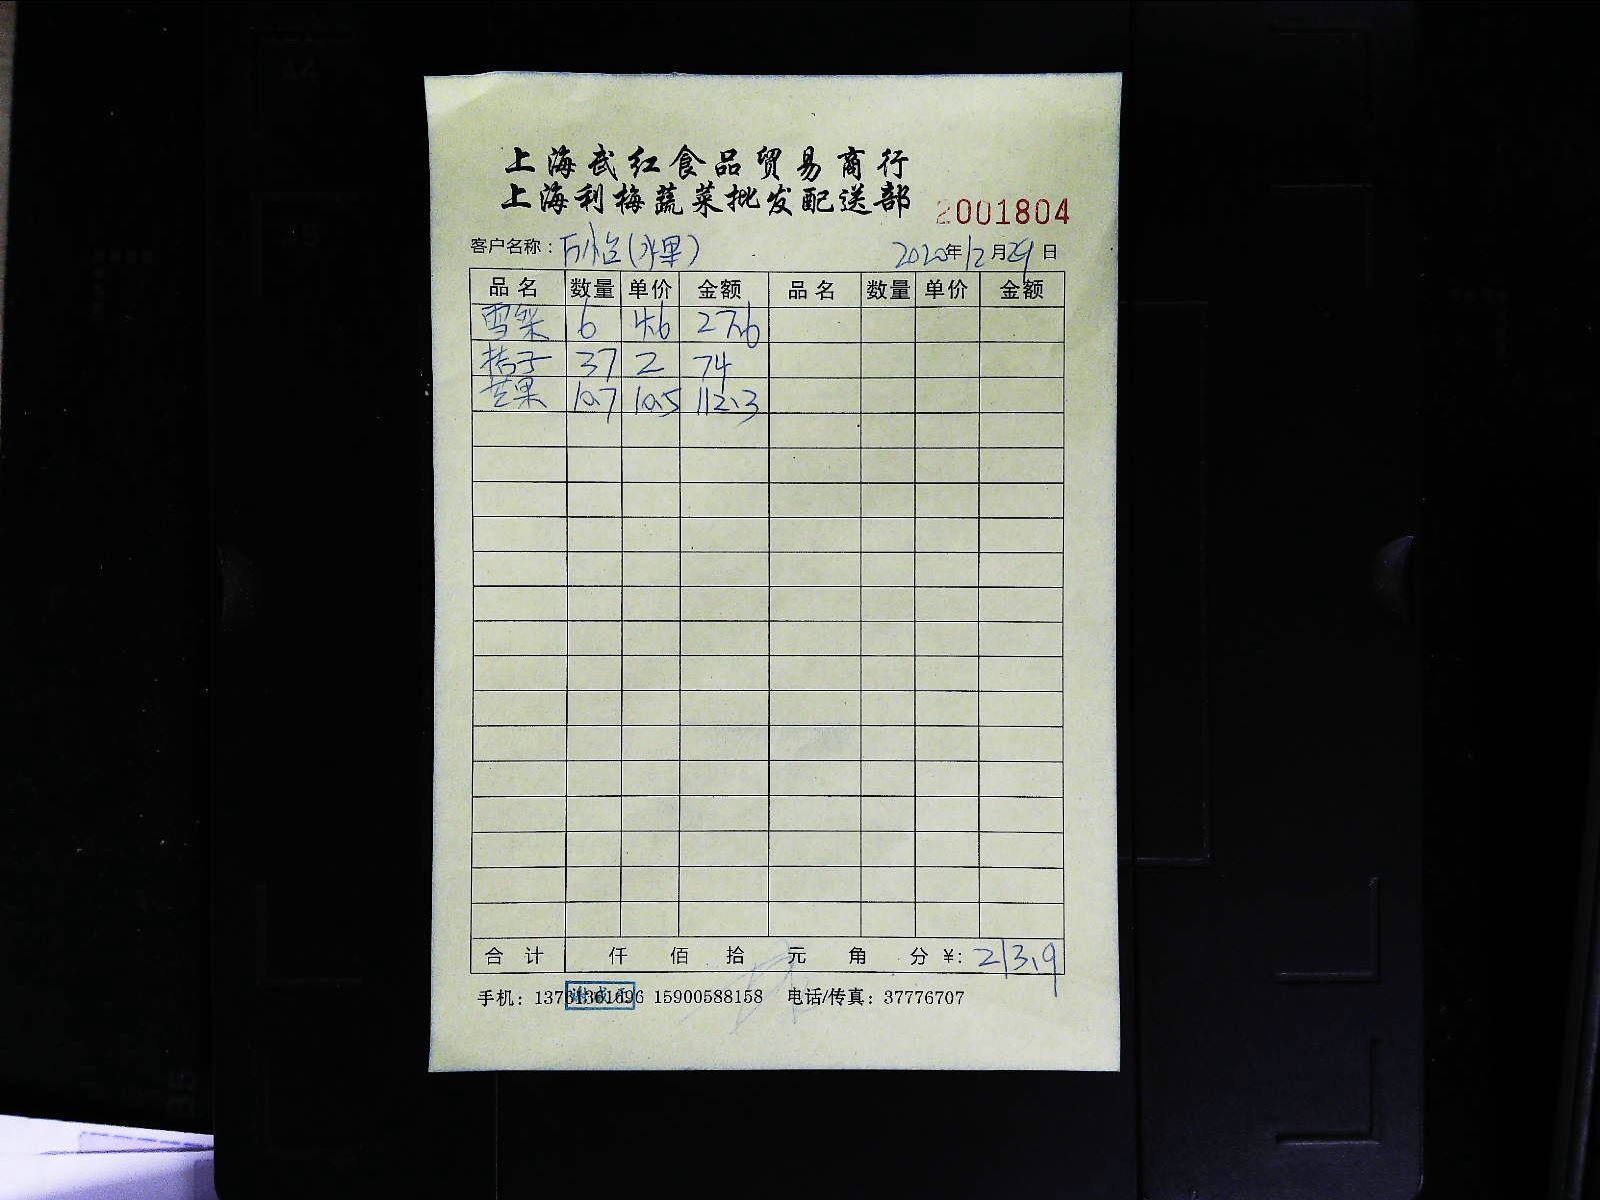 上海武红食品贸易商行
上海利梅蔬菜批发配送部 2001804
客户名称：万怡(水果) 2020年12月29日
品名 数量 单价 金额 品名 数量 单价 金额
雪梨 6 4.6 27.6
桔子 37 2 74
芒果 10.7 10.5 112.3
合计 仟 佰 拾 元 角 分 ¥: 213.9
手机：13761361696 15900588158 电话/传真：37776707